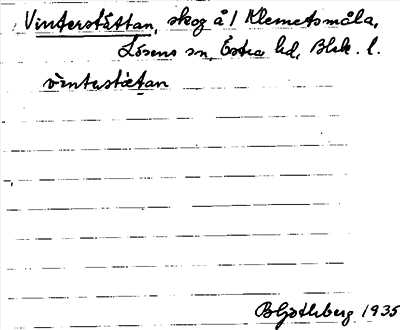 Vinterståttan, skog å 1 Klemetsmåla,
Lösens sn, Östra hd, Blek. l.
vintəståtan
1935